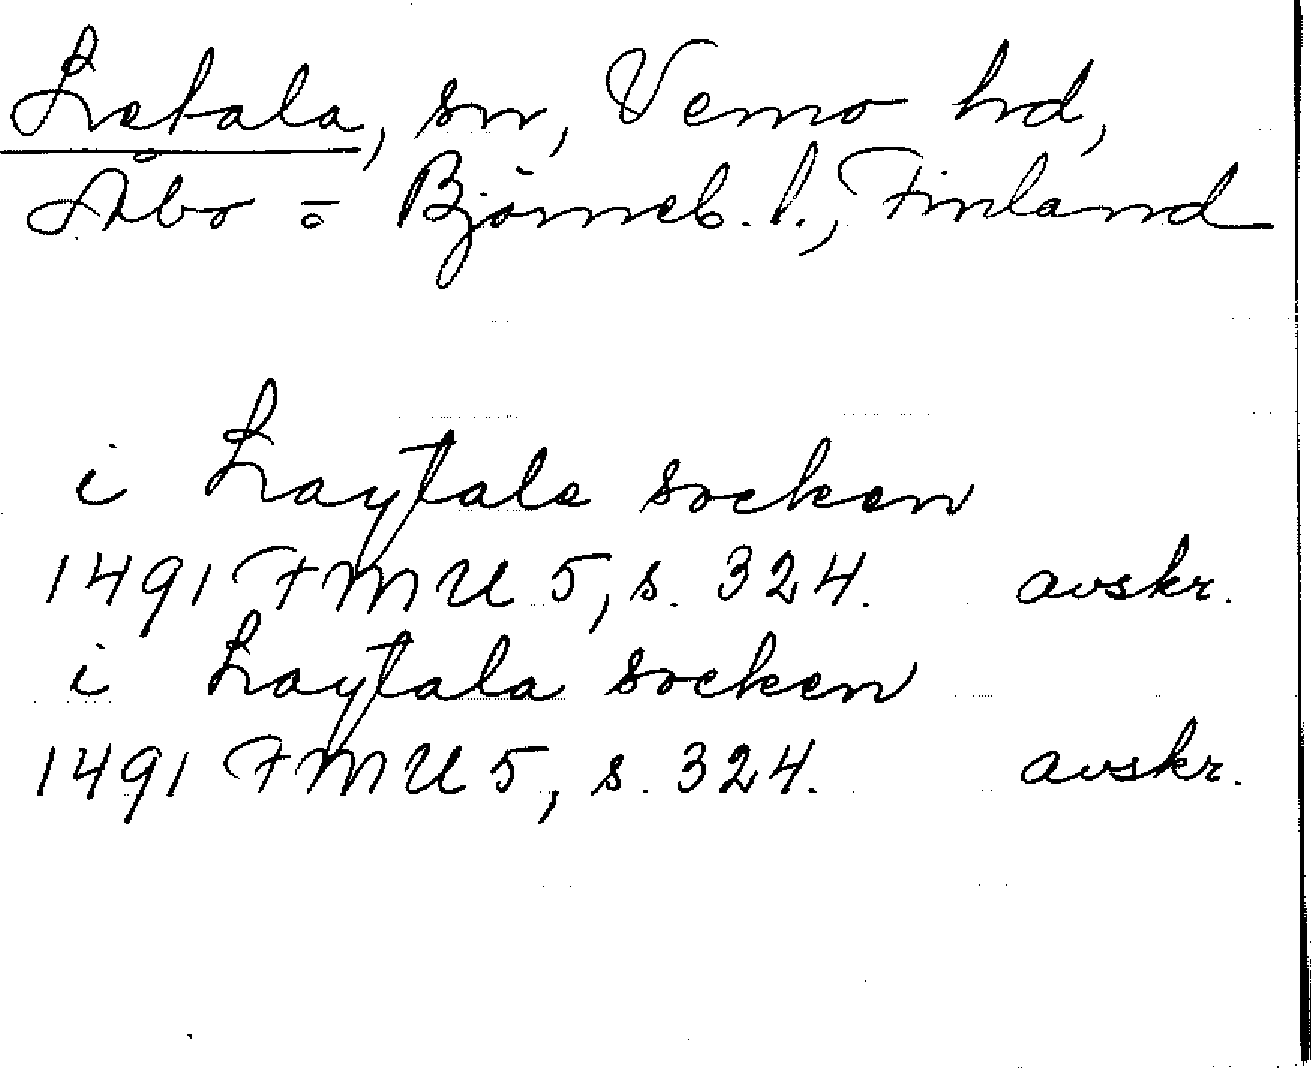 Letala, sn, Vemo hd,
Åbo = Björneb. l., Finland
i Laytala socken
1491 FMU 5, s. 324. avskr.
i Laytala socken
1491 FMU 5, s. 324. avskr.